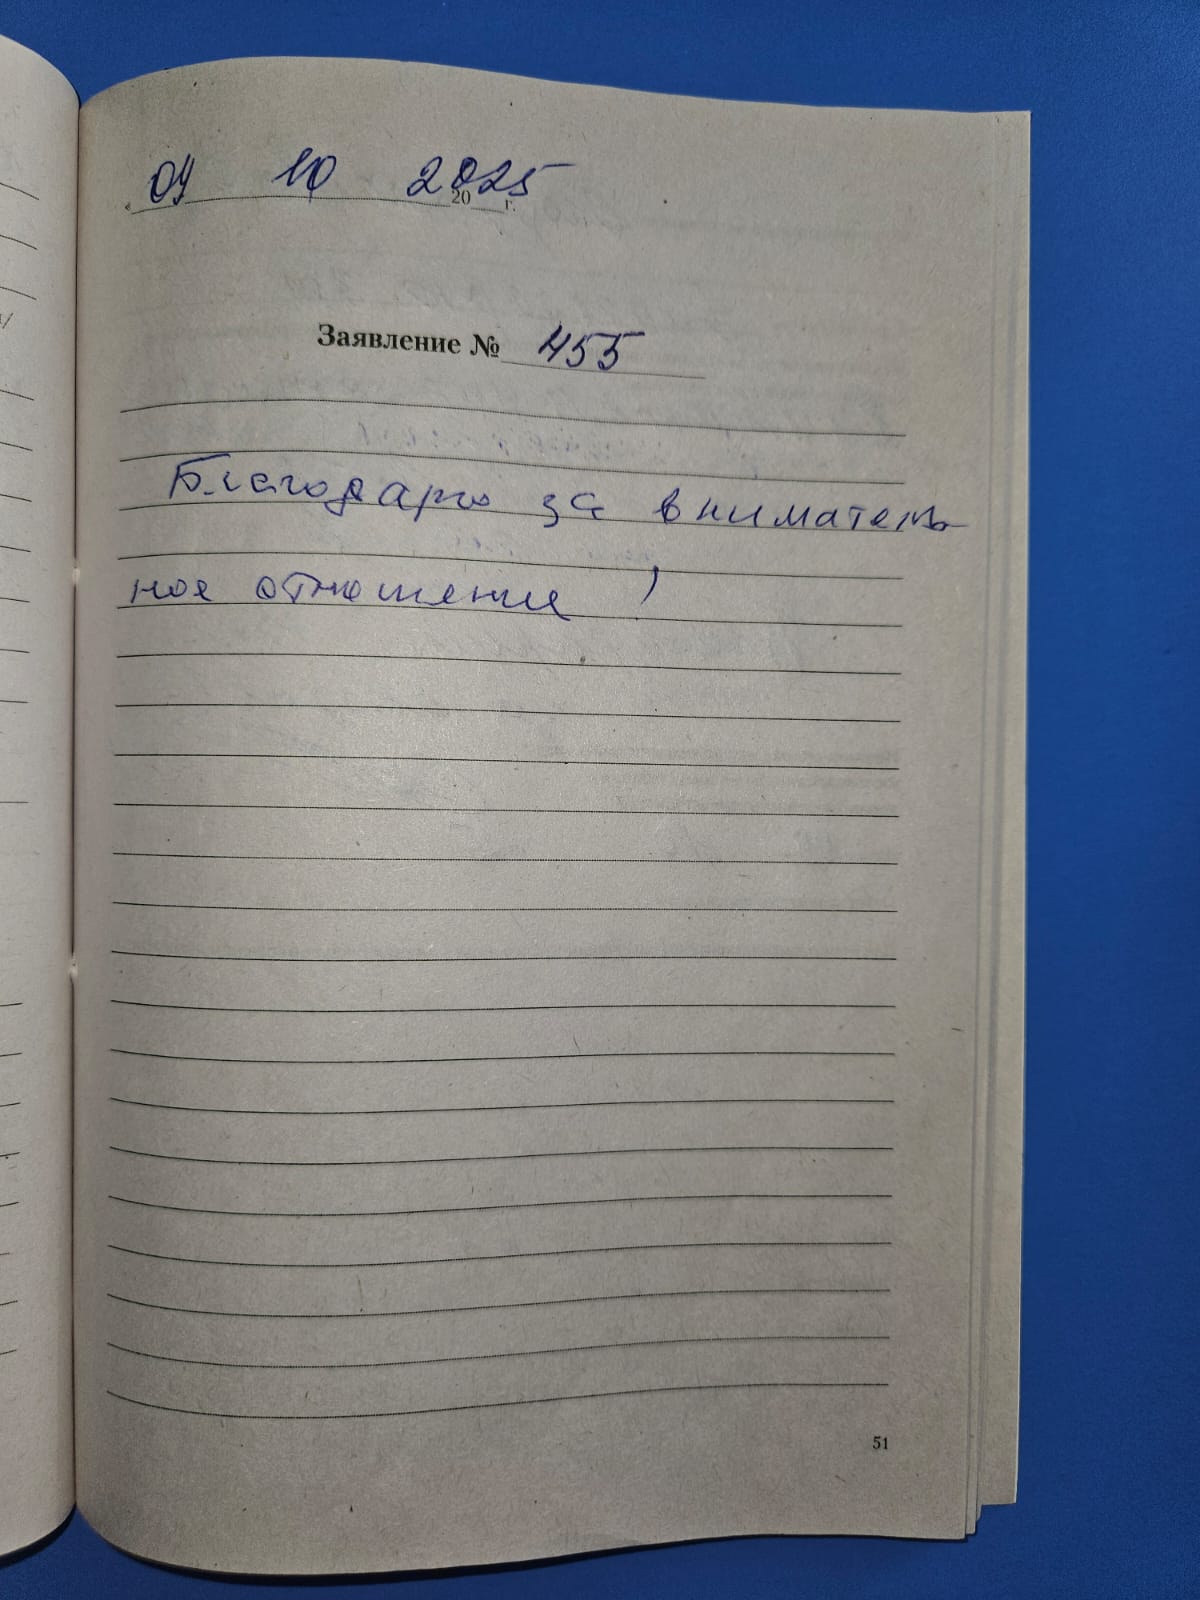 04 10 2025
« 20 г.
Заявление № 455
Благодарю за вниматель
ное отношение !
51